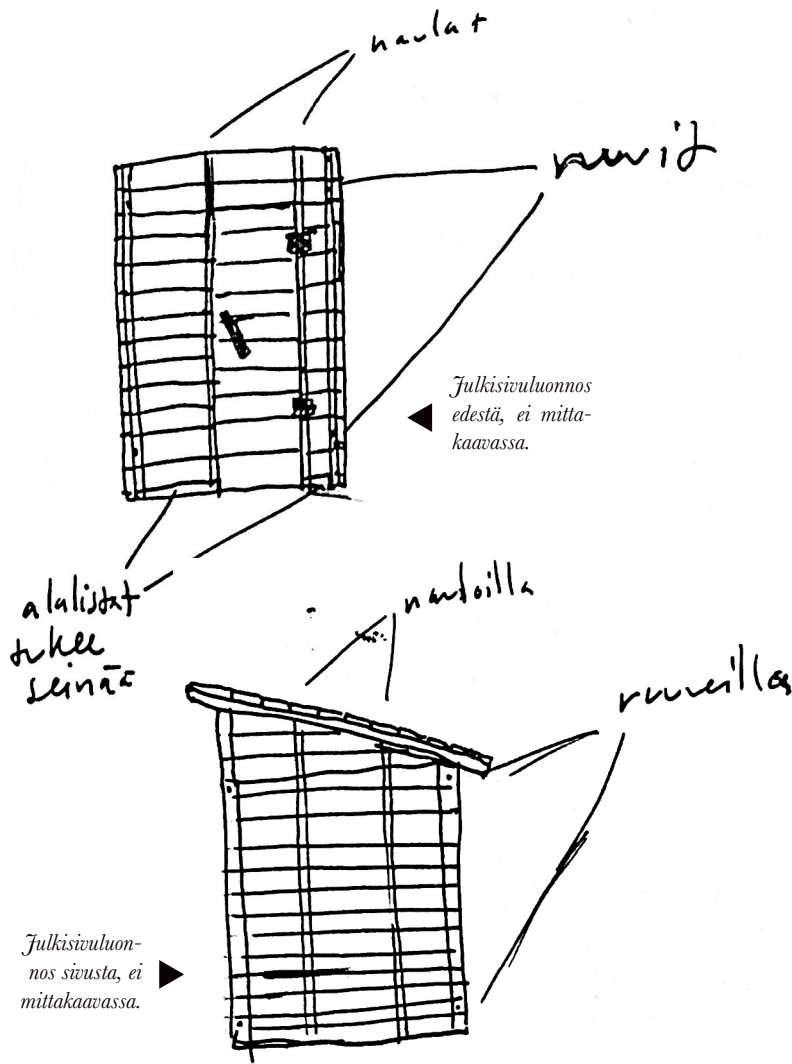 naulat
ruuvit
Julkisivuluonnos
edestä, ei mitta-
kaavassa.
alalistat
tukee
seinää
nauloilla
ruuveilla
Julkisivuluon-
nos sivusta, ei
mittakaavassa.